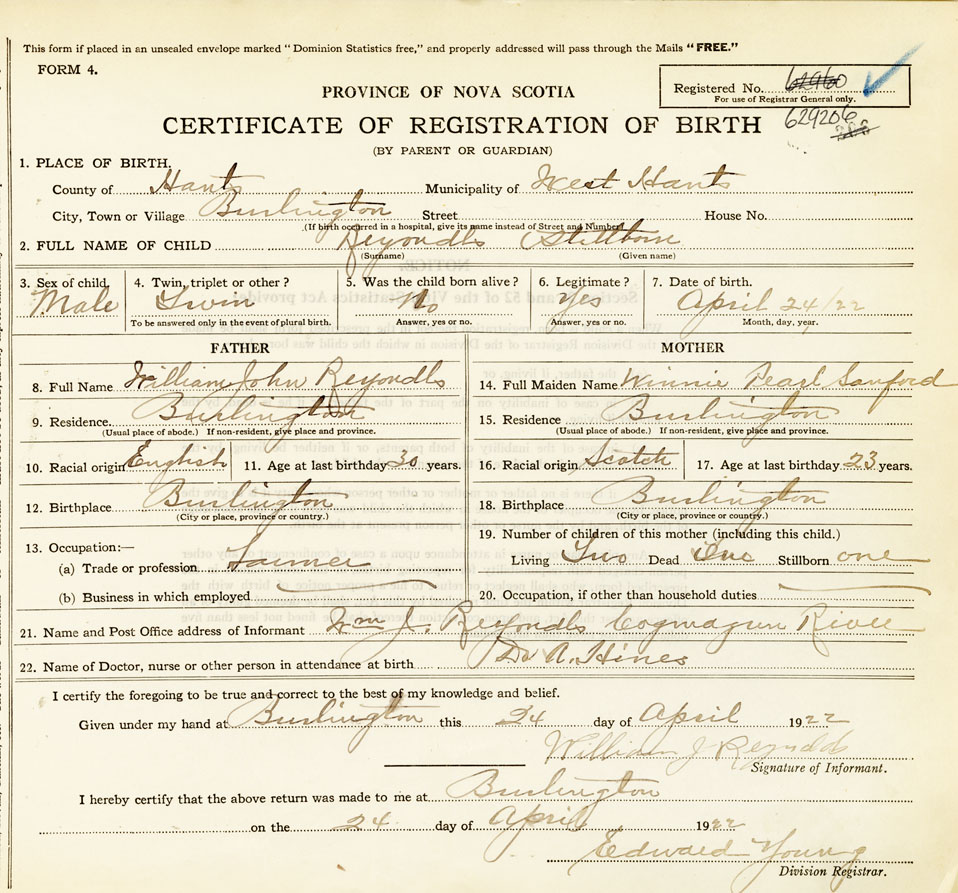 This form if placed in an unsealed envelope marked "Dominion Statistics free," and properly addressed will pass through the Mails "FREE."
FORM 4.
Registered No. 62960
For use of Registrar General only.
629206
PROVINCE OF NOVA SCOTIA
CERTIFICATE OF REGISTRATION OF BIRTH
(BY PARENT OR GUARDIAN)
1. PLACE OF BIRTH.
County of Hants Municipality of West Hants
City, Town or Village Burlington Street House No.
(If birth occurred in a hospital, give its name instead of Street and Number)
2. FULL NAME OF CHILD Reyondls Stillborn
(Surname) (Given name)
3. Sex of child. 4. Twin, triplet or other? 5. Was the child born alive? 6. Legitimate? 7. Date of birth.
Male Twin No Yes April 24/22
To be answered only in the event of plural birth. Answer, yes or no. Answer, yes or no. Month, day, year.
FATHER MOTHER
8. Full Name William John Reyondls 14. Full Maiden Name Winnie Pearl Sanford
9. Residence. Burlington 15. Residence Burlington
(Usual place of abode.) If non-resident, give place and province. (Usual place of abode.) If non-resident, give place and province.
10. Racial origin English 11. Age at last birthday 30 years. 16. Racial origin Scotch 17. Age at last birthday 23 years.
12. Birthplace Burlington 18. Birthplace Burlington
(City or place, province or country.) (City or place, province or country.)
13. Occupation:— 19. Number of children of this mother (including this child.)
(a) Trade or profession Farmer Living Two Dead One Stillborn one
(b) Business in which employed 20. Occupation, if other than household duties
21. Name and Post Office address of Informant Wm J. Reyondls Cogmagun River
22. Name of Doctor, nurse or other person in attendance at birth Dr A. Hines
I certify the foregoing to be true and correct to the best of my knowledge and belief.
Given under my hand at Burlington this 24 day of April 1922
William J Reynolds
Signature of Informant.
I hereby certify that the above return was made to me at Burlington
on the 24 day of April 1922
Edward Young
Division Registrar.